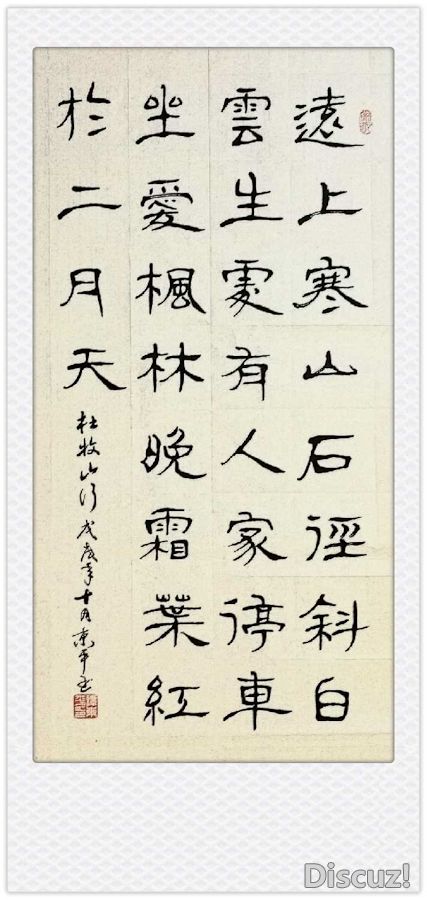 遠上寒山石徑斜白
雲生處有人家停車
坐愛楓林晚霜葉紅
於二月天
杜牧山行 戊戌年十月
Discuz!